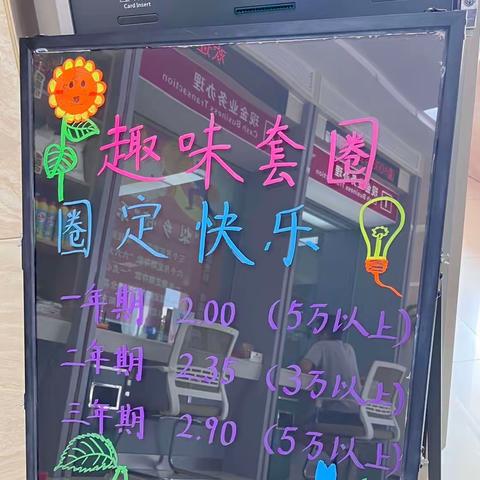 Card Insert
趣味套圈
圈定快乐
一年期 2.00 (5万以上)
二年期 2.35 (3万以上)
三年期 2.90 (5万以上)
现金业务办理
Cash Business Transaction